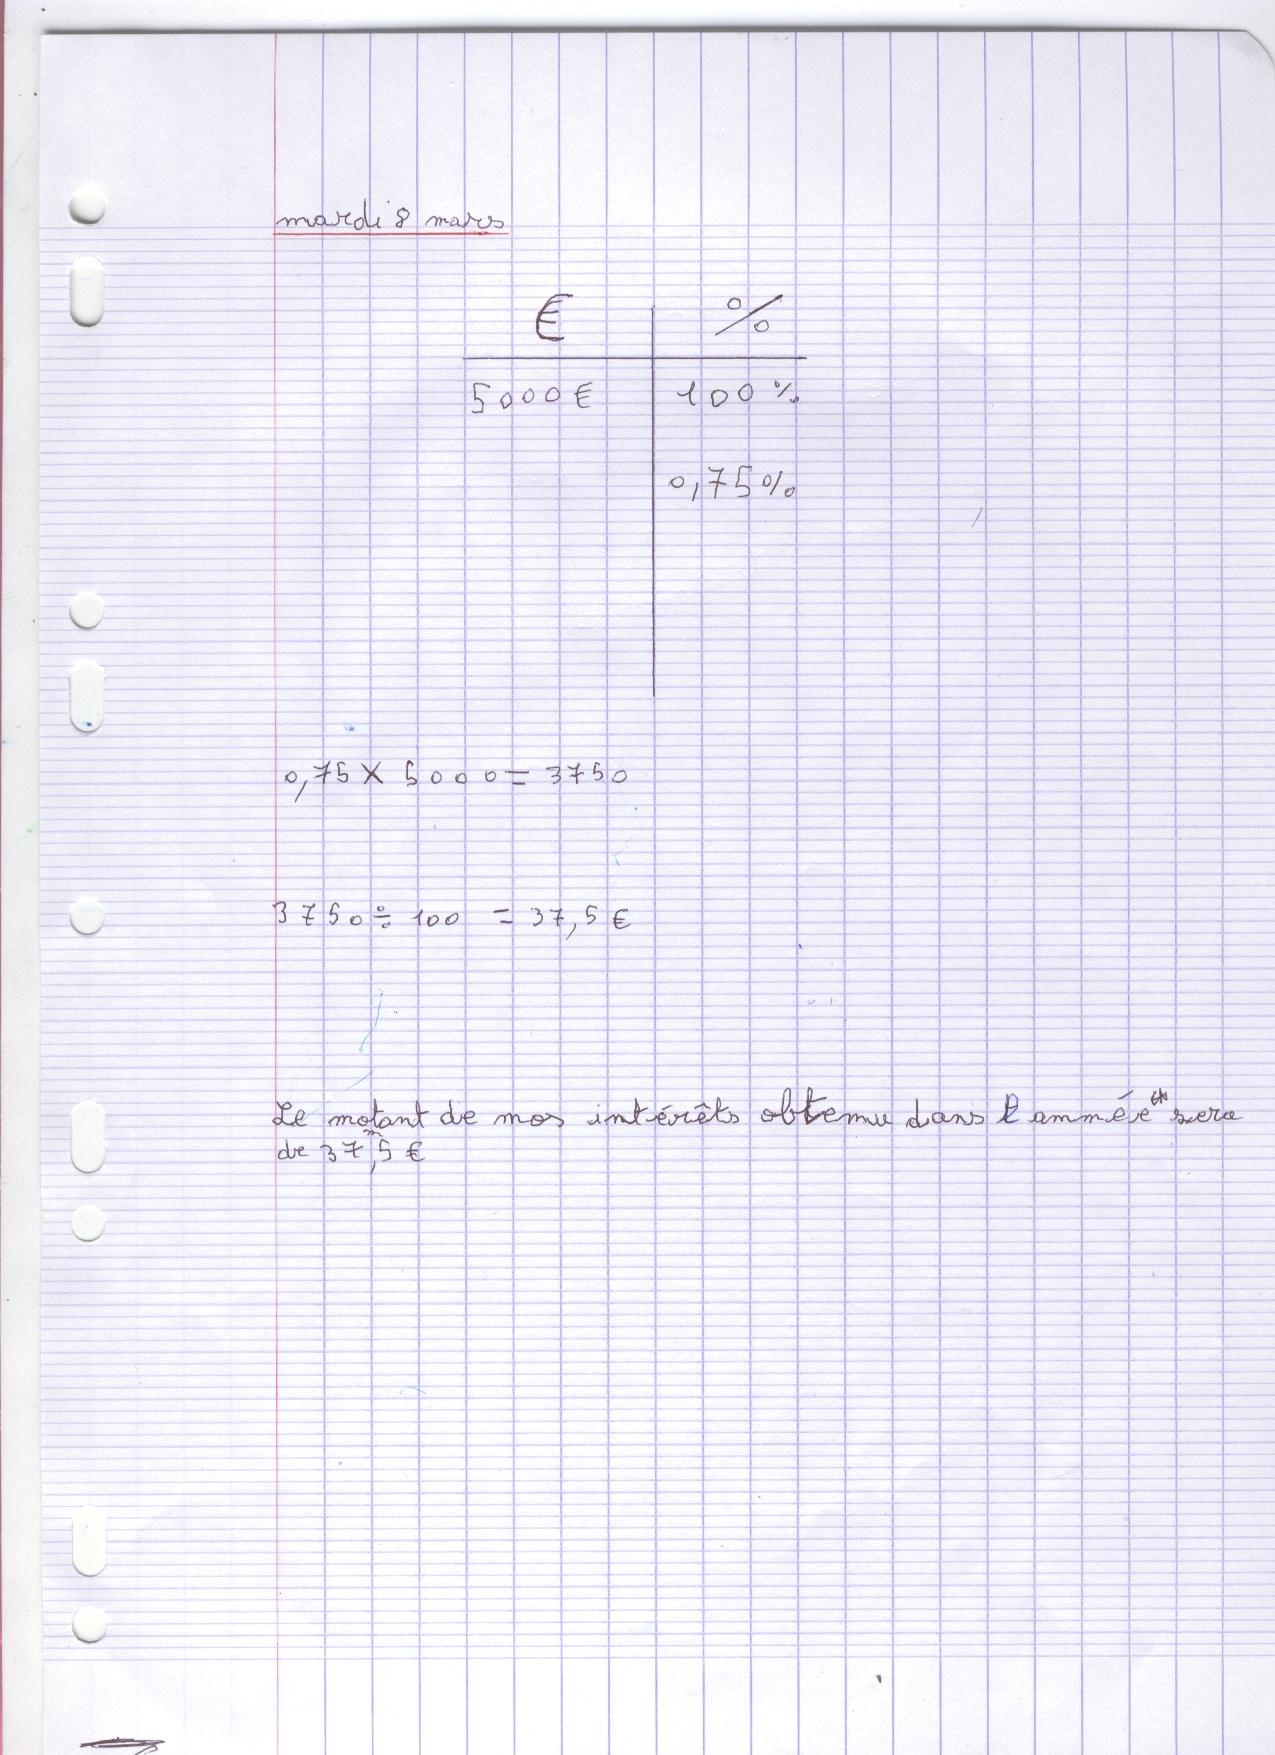 mardi 8 mars
€ %
5000€ 100%
0,75%
0,75 × 5000 = 3750
3750 ÷ 100 = 37,5 €
Le motant de mos intérêts obtenu dans l année sera
n
de 37,5 €